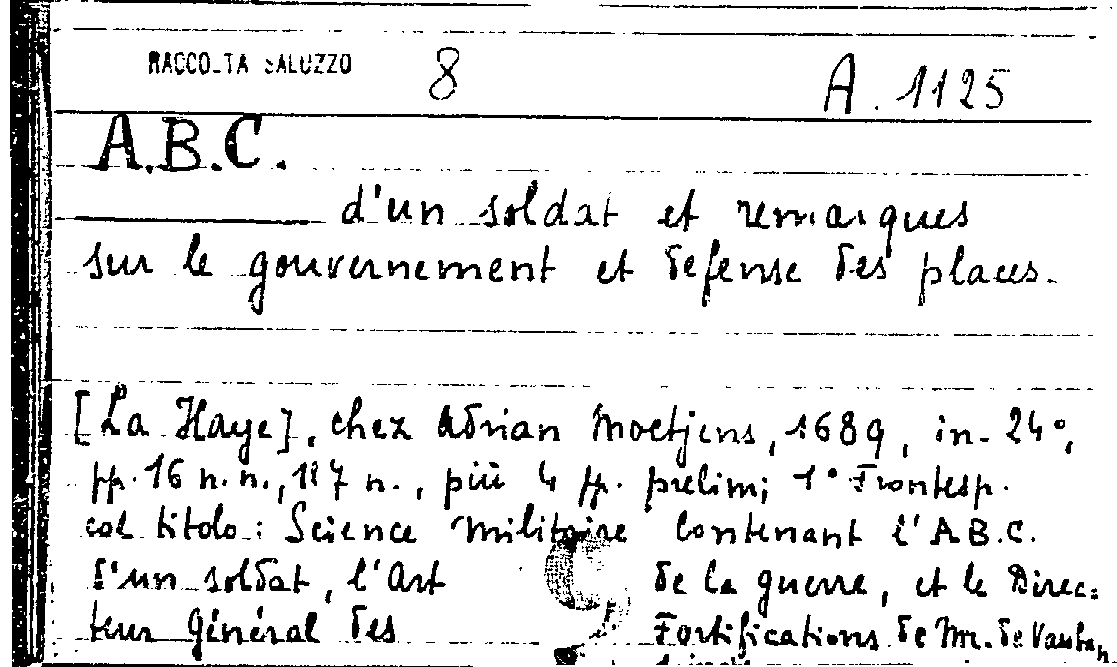 RACCOLTA SALUZZO 8 A. 1125
A.B.C.
d'un soldat et remarques
sur le gouvernement et defense des places.
[La Haye], chez Adrian Moetjens, 1689, in-24°,
pp. 16 n.n., 117 n., più 4 pp. prelim; 1° Frontesp.
col titolo: Science militaire contenant l'A.B.C.
d'un soldat, l'Art de la guerre, et le Direc=
teur Général des Fortifications de Mr. de Vauban